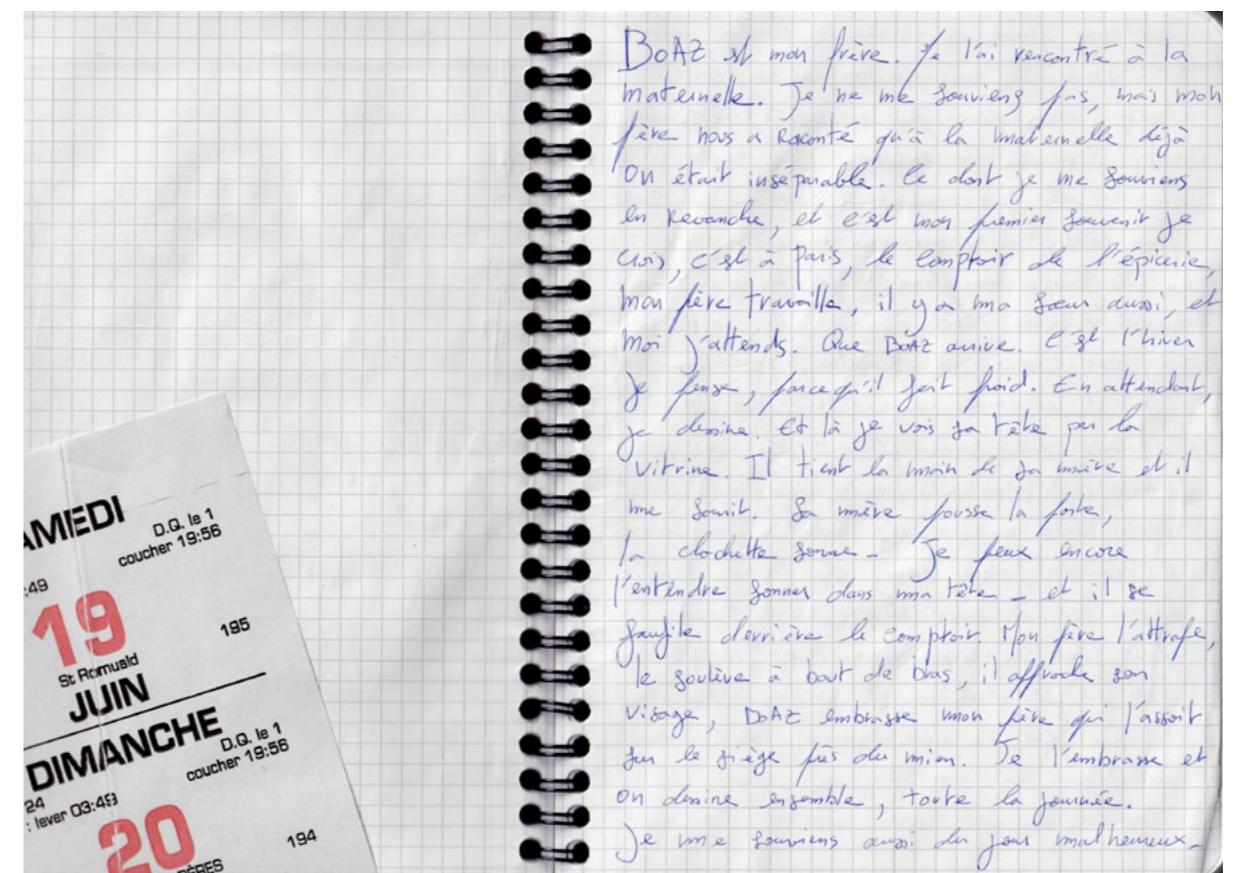 AMEDI
D.Q. le 1
coucher 19:56
:49
19
195
St Romuald
JUIN
DIMANCHE
D.Q. le 1
coucher 19:56
24
: lever 03:49
20
194
ÈRES
BoAZ est mon frère. Je l'ai rencontré à la
maternelle. Je ne me souviens pas, mais mon
père nous a raconté qu'à la maternelle déjà
on était inséparable. Ce dont je me souviens
en revanche, et c'est mon premier souvenir je
crois, c'est à Paris, le comptoir de l'épicerie,
mon père travaille, il y a ma sœur aussi, et
moi j'attends. Que BOAZ arrive. C'est l'hiver
je pense, parce qu'il fait froid. En attendant,
je dessine. Et là je vois sa tête par la
vitrine. Il tient la main de sa mère et il
me sourit. Sa mère pousse la porte,
la clochette sonne - Je peux encore
l'entendre sonner dans ma tête - et il se
faufile derrière le comptoir. Mon père l'attrape,
le soulève à bout de bras, il approche son
visage, BOAZ embrasse mon père qui l'assoit
sur le siège près du mien. Je l'embrasse et
on dessine ensemble, toute la journée.
Je me souviens aussi du jour malheureux -